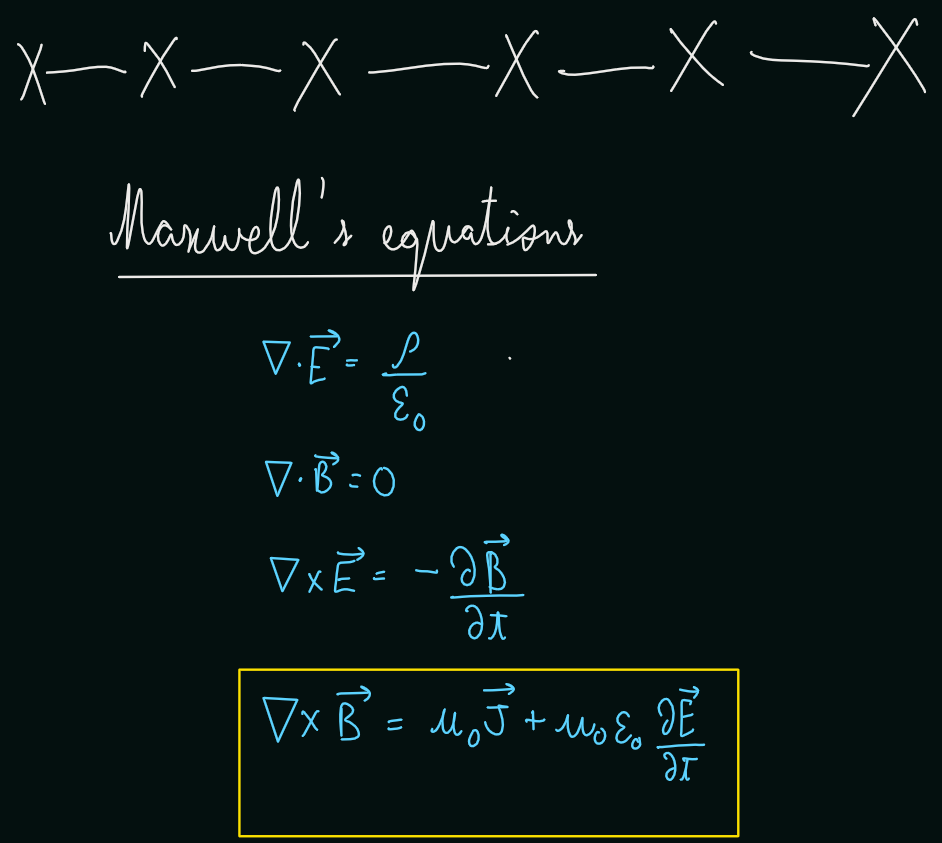 X — X — X — X — X — X
Maxwell's equations
∇·E⃗ = ρ/ε₀
∇·B⃗ = 0
∇×E⃗ = -∂B⃗/∂t
∇×B⃗ = μ₀J⃗ + μ₀ε₀ ∂E⃗/∂t